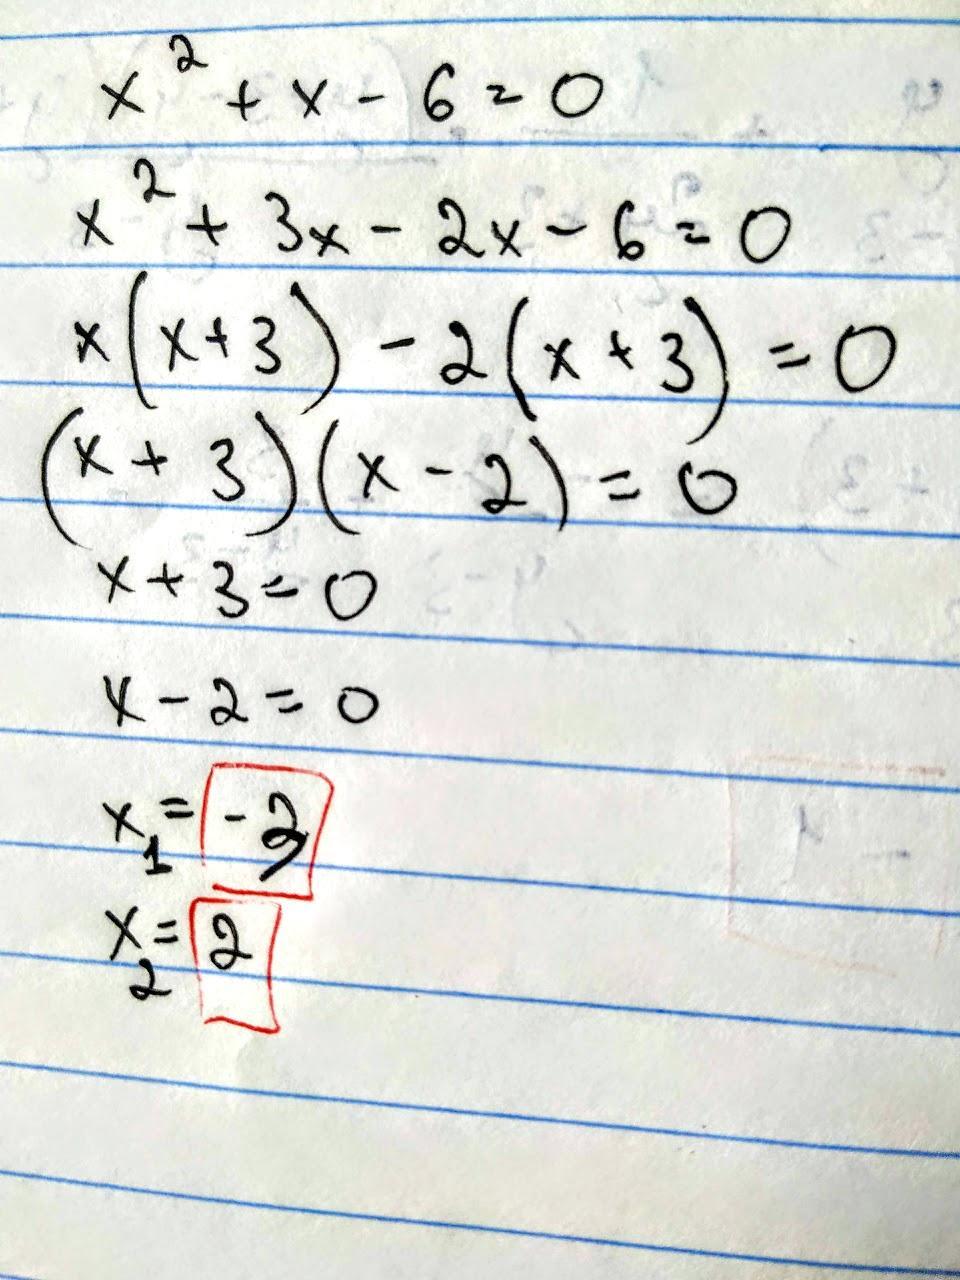 x² + x - 6 = 0
x² + 3x - 2x - 6 = 0
x(x+3) - 2(x+3) = 0
(x+3)(x-2) = 0
x+3=0
x-2=0
x₁ = -3
x₂ = 2